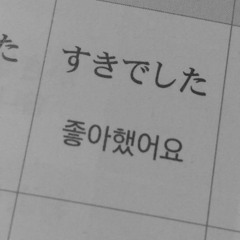 た
すきでした
좋아했어요